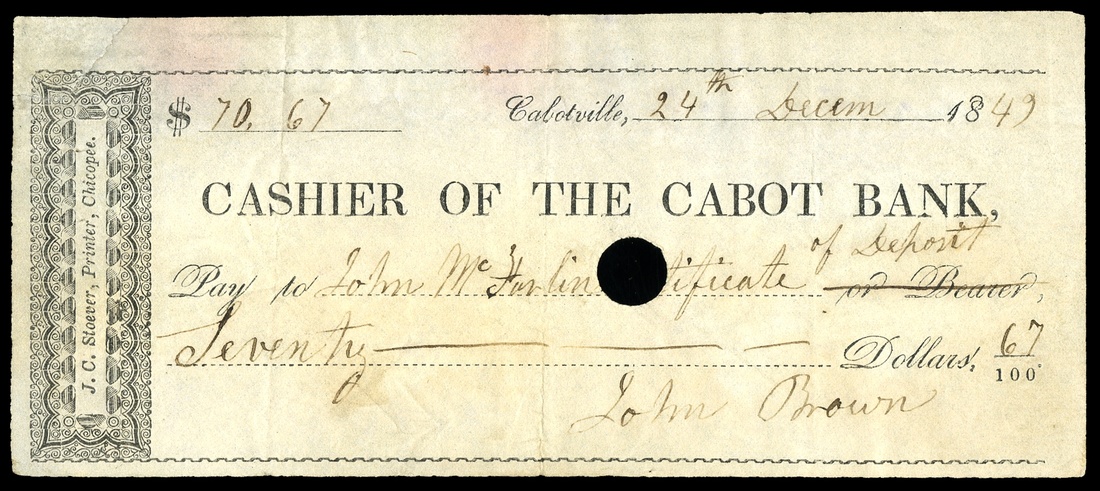 J. C. Stoever, Printer, Chicopee.
$ 70. 67 Cabotville, 24th Decem 1849
CASHIER OF THE CABOT BANK,
Pay to John McFarlin tificate of Deposit or Bearer,
Seventy Dollars, 67/100
John Brown